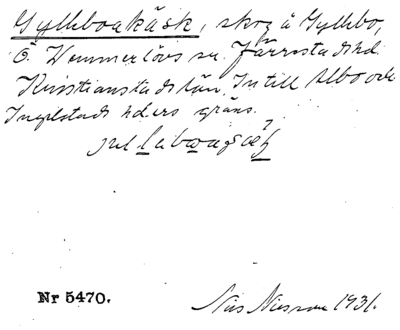 Gyllboakäsk, skog å Gyllebo,
Ö. Vemmerlövs sn. Järrestads hd
Kristianstads län. Intill Albo och
Ingelstads hders gräns.
Nr 5470.
Nils Nilsson 1931.